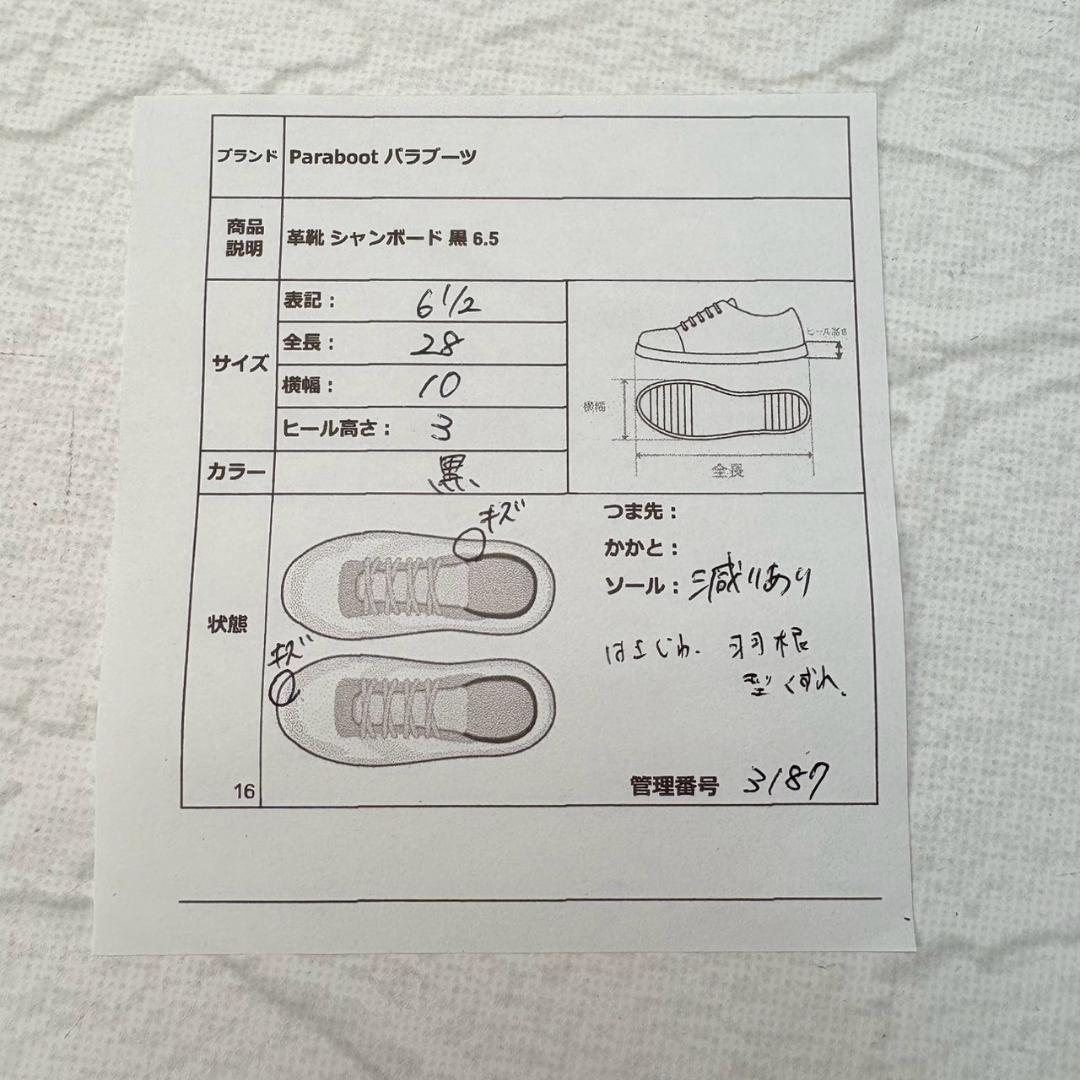 ブランド Paraboot パラブーツ
商品
説明
革靴 シャンボード 黒 6.5
サイズ
表記： 6 1/2
全長： 28
横幅： 10
ヒール高さ： 3
ヒール高さ
横幅
全長
カラー 黒
状態
キズ
キズ
つま先：
かかと：
ソール：減りあり
はきじわ. 羽根
型くずれ.
16
管理番号 3187